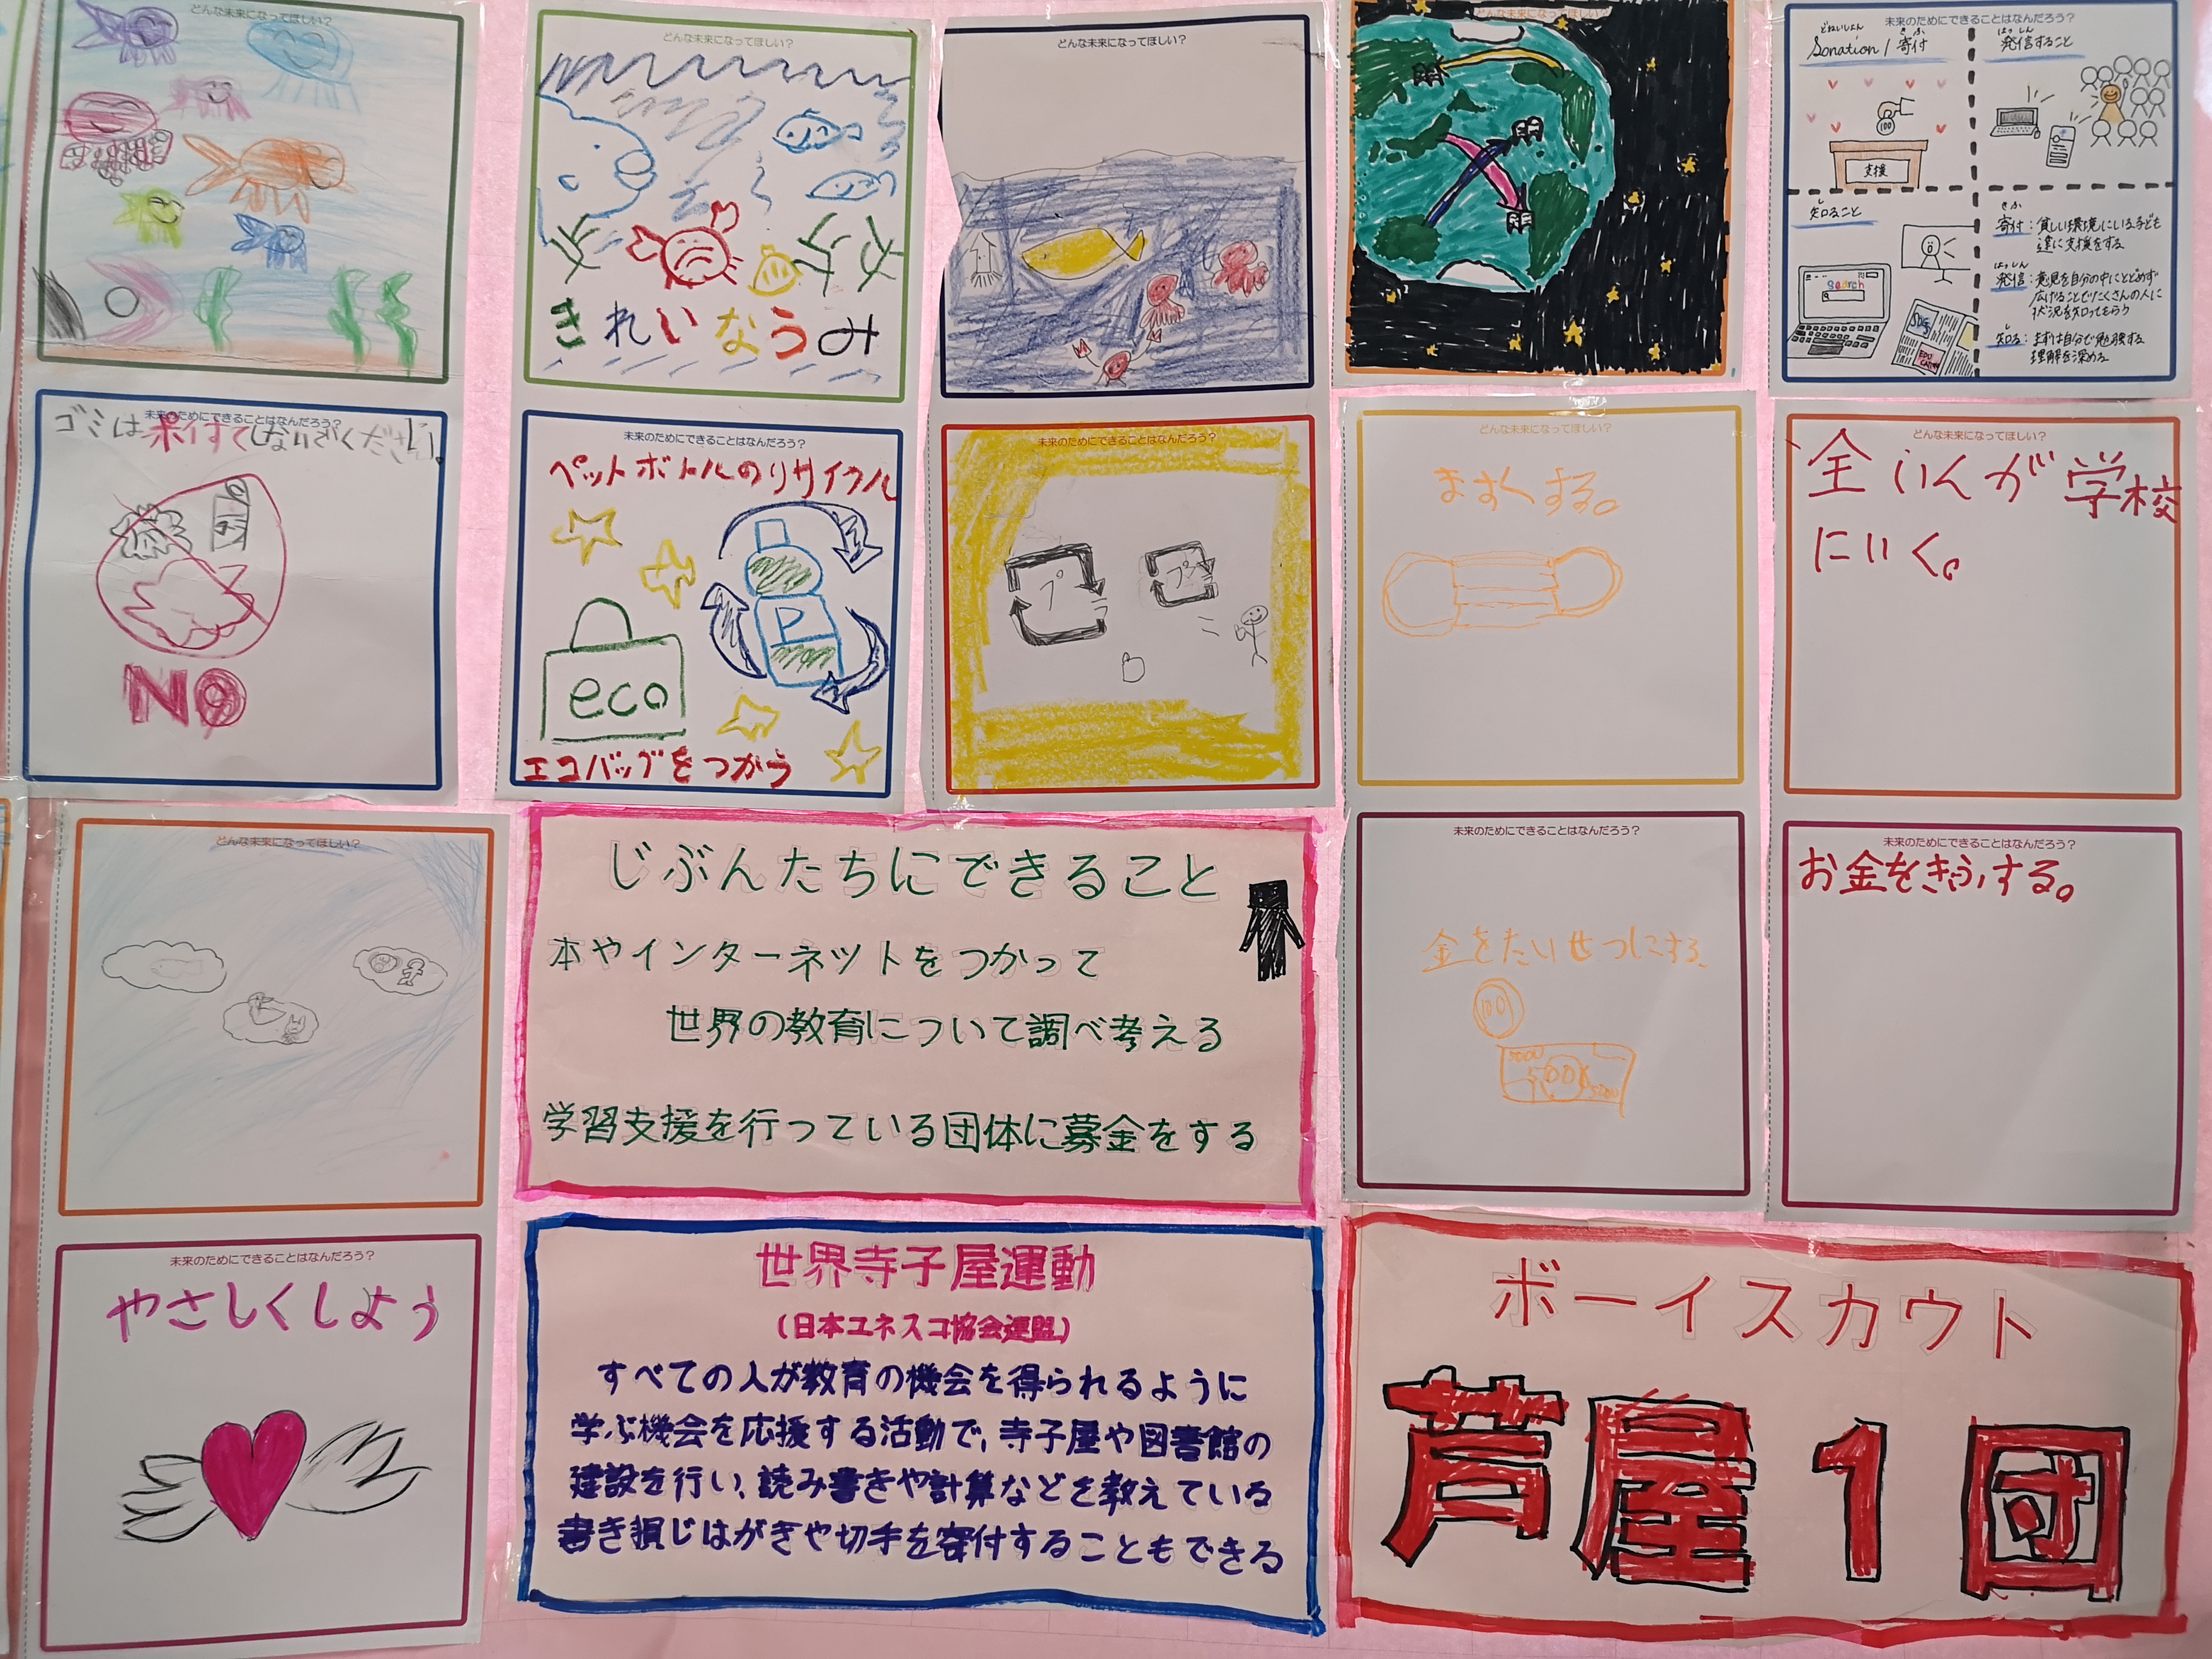 どんな未来になってほしい?
どんな未来になってほしい?
きれいなうみ
どんな未来になってほしい?
どんな未来になってほしい?
未来のためにできることはなんだろう?
どねいしょん
きふ
Donation / 寄付
100
支援
はっしん
発信すること
し
知ること
search
SDGs
EDUCATION
きふ
寄付:貧しい環境にいる子ども
達に支援をする
はっしん
発信:意見を自分の中にとどめず
広げることでたくさんの人に
状況を知ってもらう
し
知る:まずは自分で勉強する
理解を深める
未来のためにできることはなんだろう?
ゴミはポイすてしないでください。
NO
未来のためにできることはなんだろう?
ペットボトルのリサイクル
P
eco
エコバッグをつかう
未来のためにできることはなんだろう?
プ
プ
どんな未来になってほしい?
ますくする。
どんな未来になってほしい?
全いんが学校
にいく。
どんな未来になってほしい?
じぶんたちにできること
本やインターネットをつかって
世界の教育について調べ考える
学習支援を行っている団体に募金をする
未来のためにできることはなんだろう?
金をたいせつにする。
100
5000
未来のためにできることはなんだろう?
お金をきふする。
未来のためにできることはなんだろう?
やさしくしよう
世界寺子屋運動
(日本ユネスコ協会連盟)
すべての人が教育の機会を得られるように
学ぶ機会を応援する活動で、寺子屋や図書館の
建設を行い、読み書きや計算などを教えている
書き損じはがきや切手を寄付することもできる
ボーイスカウト
芦屋1団